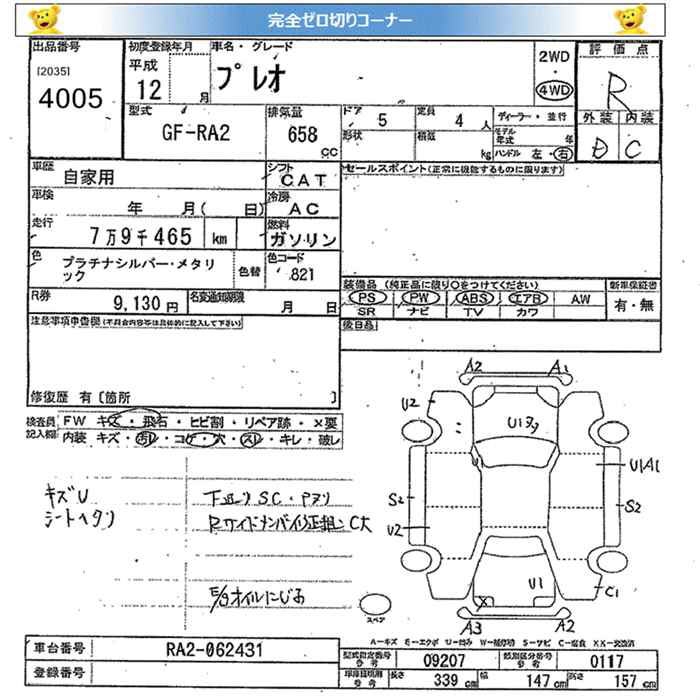 完全ゼロ切りコーナー
出品番号 初度登録年月 車名・グレード 2WD 評価点
[2035] 平成 プレオ 4WD R
4005 12 月
型式 排気量 ドア 5 定員 4 人 ディーラー・並行 外装 内装
GF-RA2 658 cc 形状 積載 kg モデル年式 年 D C
ハンドル 左・右
車歴 自家用 シフト CAT セールスポイント(正常に機能するものに限ります)
車検 年 月( 日) 冷房 AC
走行 7万9千465 km 燃料 ガソリン
色 プラチナシルバー・メタリック 色替 色コード 821
装備品(純正品に限り○をつけてください) 新車保証書
R券 9,130円 名変通知期限 月 日 PS PW ABS エアB AW 有・無
SR ナビ TV カワ
注意事項申告欄(不具合内容等は具体的に記入して下さい) 後日品
修復歴 有〔箇所 〕
検査員記入欄 FW キズ・飛石・ヒビ割・リペア跡・×要
内装 キズ・汚れ・コゲ・穴・スレ・キレ・破レ
A2 A1
U2 U1
U1 U1A1
キズU 下廻りSC・Pヌリ S2 S2
シートヘタリ U2
U1 C1
E/gオイルにじみ
スペア A3 X A2
A-キズ E-エクボ U-凹み W-補修跡 S-サビ C-腐食 XX-交換済
車台番号 RA2-062431 型式指定番号 参考 09207 類別区分番号 参考 0117
登録番号 長さ 339 cm 幅 147 cm 高さ 157 cm